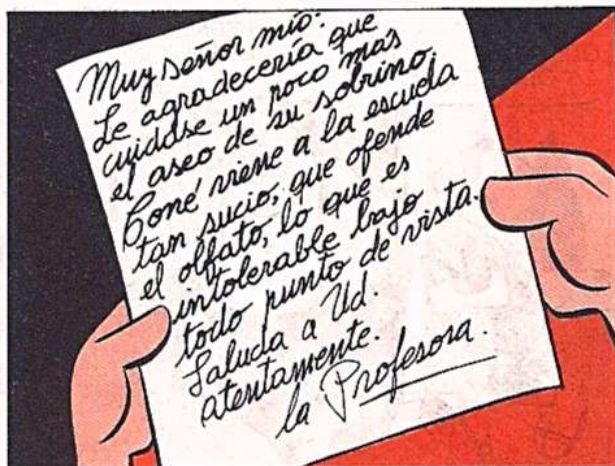 Muy señor mío:
Le agradecería que
cuidase un poco más
el aseo de su sobrino.
Coné viene a la escuela
tan sucio, que ofende
el olfato, lo que es
intolerable bajo
todo punto de vista.
Saluda a Ud.
atentamente.
la Profesora.